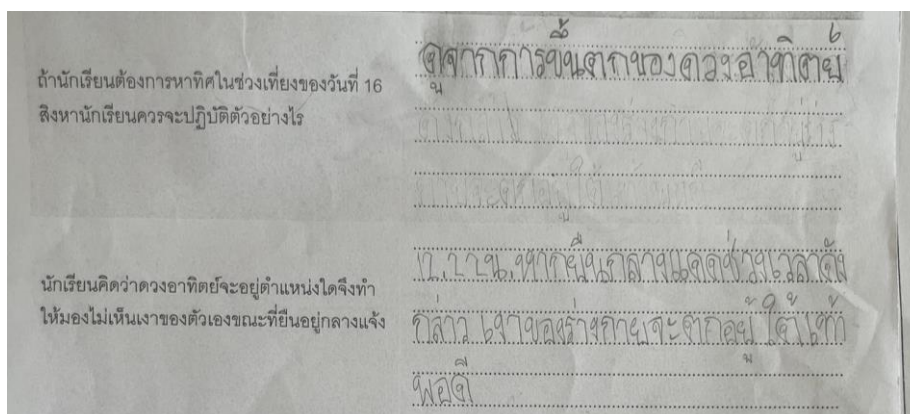 ถ้านักเรียนต้องการหาทิศในช่วงเที่ยงของวันที่ 16
สิงหานักเรียนควรจะปฏิบัติตัวอย่างไร
ดูจากการขึ้นตกของดวงอาทิตย์
นักเรียนคิดว่าดวงอาทิตย์จะอยู่ตำแหน่งใดจึงทำ
ให้มองไม่เห็นเงาของตัวเองขณะที่ยืนอยู่กลางแจ้ง
12.22น.หากยืนกลางแดดช่วงเวลาดัง
กล่าว เงาของร่างกายจะตกอยู่ ใต้เท้า
พอดี